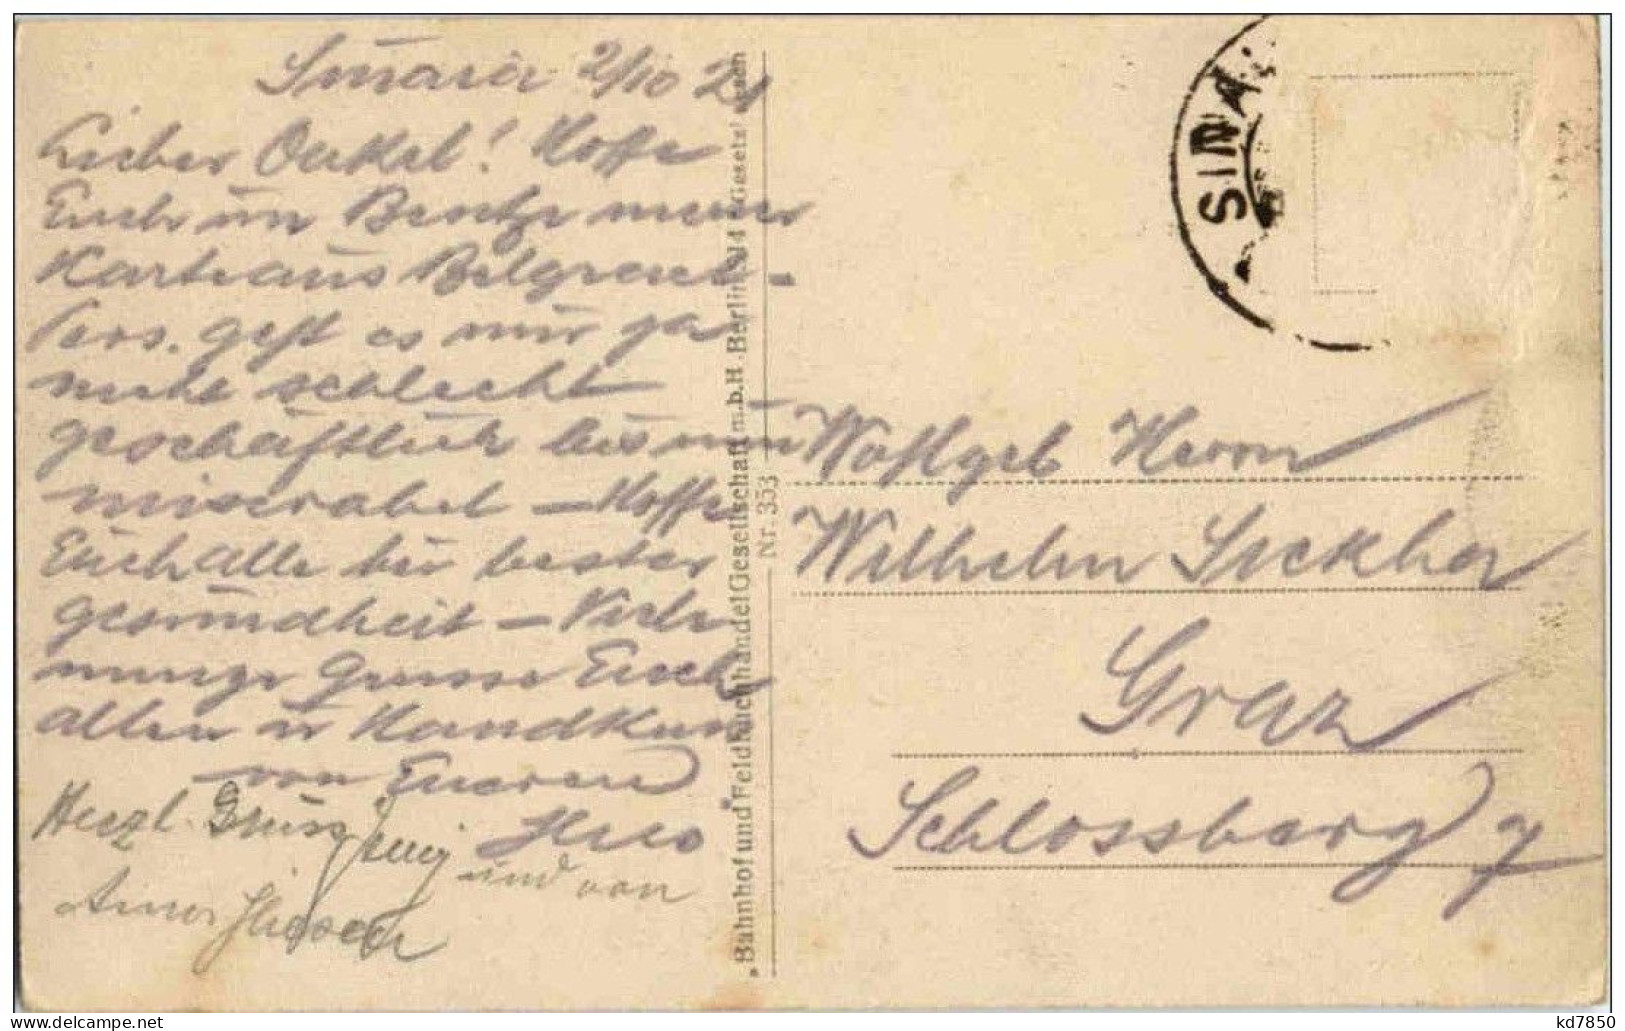 Sinaia 2/10 21
Lieber Onkel! Hoffe
Euch im Besitze meiner
Karte aus Belgrad –
Pers. geht es mir ja
nicht schlecht
geschäftlich bis nun
miserabel – Hoffe
Euch alle bei bester
gesundheit – Viele
innige Grüsse Euch
allen u Handkuss
von Eueren
Hugo
Herzl. Grüsse
und von
"Bahnhof und Feldbuchhandel Gesellschaft m.b.H. Berlin N 4 Gesetz
Nr. 353
SINAIA
Wohlgeb Herrn
Wilhelm
Graz
Schlossberg 7